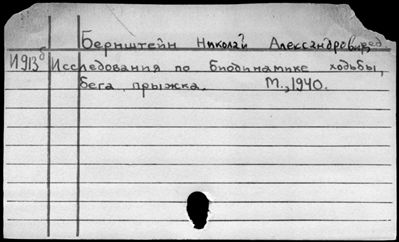 Бернштейн Николай Александрович, ред.
И913б Исследования по биодинамике ходьбы,
бега, прыжка. М., 1940.